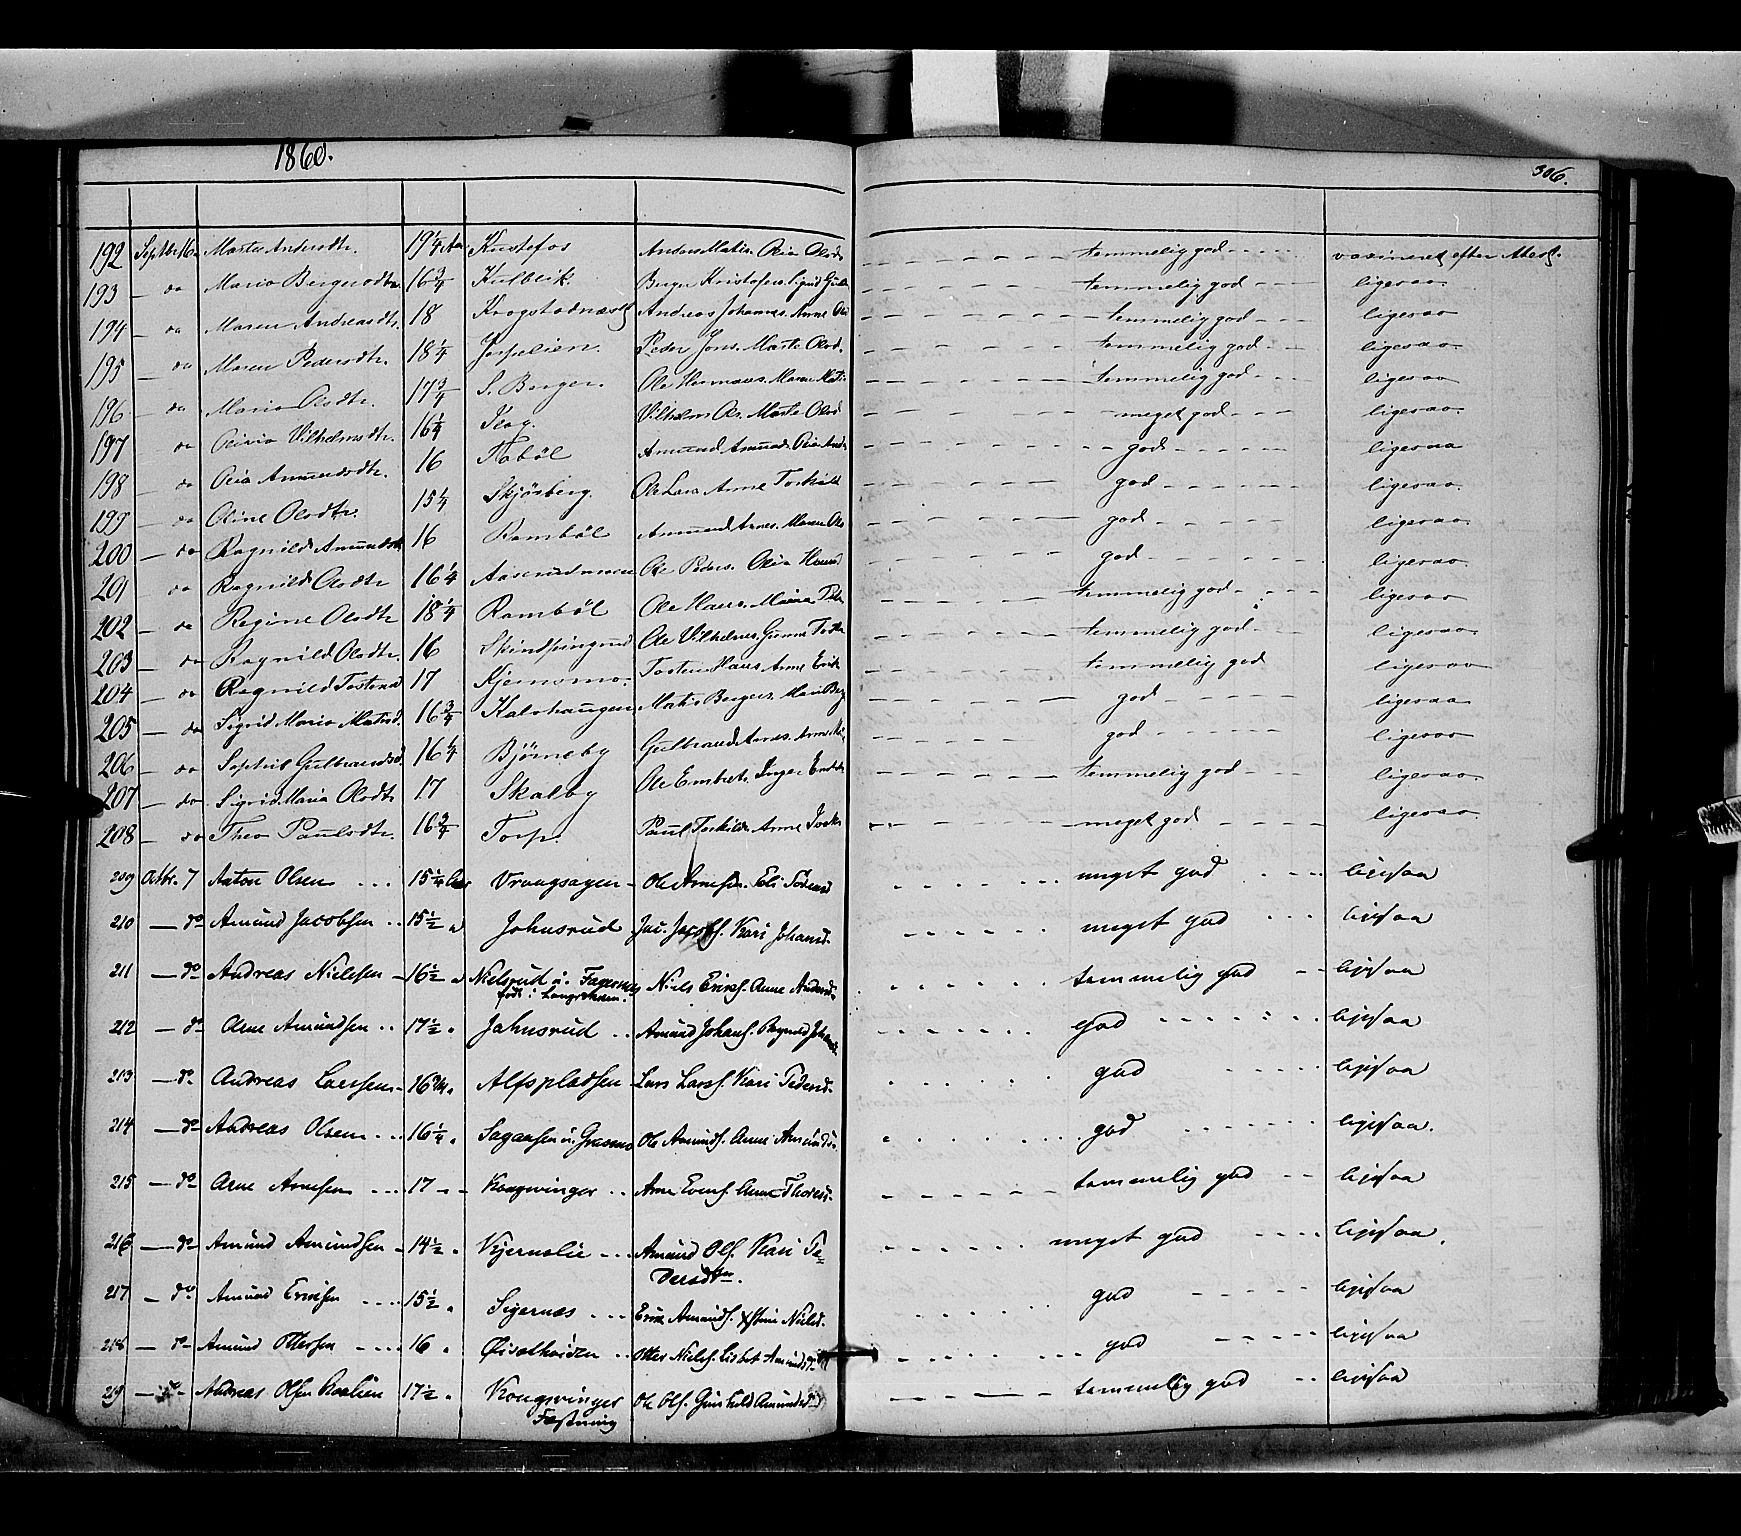 1860.
306.
192 Septbr 16 Marte Andersdtr. 19 1/4 Aar Kustefos Anders Matis. Olia Olsdr - - - - - - temmelig god - - - - vaxineret efter Attest.
193 - do Maria Bergersdtr 16 3/4 Kulblik. Berger Kristofers. Sigrid Gulb - - - - - - temmelig god - - - ligesaa
194 - do Maren Andreasdtr. 18 Krogstadnæset Andreas Johannes. Anne Ols - - - - - - temmelig god - - - ligesaa
195 - do Maren Pedersdtr. 18 1/4 Peder Jons. Marte Olsd. - - - - - - temmelig god - - ligesaa
196 - do Maria Olsdtr. 17 3/4 S. Berger. Ole Hermans. Maren Matis - - - - - - temmelig god - - - ligesaa
197 - do Olivia Vilhelmsdtr. 16 1/4 Vilhelm Ols. Marte Olsd - - - - - - meget god - - - - ligesaa
198 - do Olia Amundsdtr. 16 Tabøl Amund Amunds. Olia Ande - - - - - - god - - - - - ligesaa
199 - do Oline Olsdtr. 15 1/4 Skjøsberg. Ole Lars. Anne Torkilds - - - - - - god - - - - - ligesaa
200 - do Ragnild Amundsdtr 16 Rambøl Amund Arnes. Maren Ols - - - - - - god - - - - - ligesaa
201 - do Ragnild Olsdtr 16 1/4 Aaserudmoen Ole Peders. Olia - - - - - - god - - - - - ligesaa
202 - do Regine Olsdtr 18 1/4 Rambøl Ole Hans. - - - - - - temmelig god - - - - ligesaa
203 - do Ragnild Olsdtr. 16 Skindpungrud Ole Vilhelms. Gunner Tosten - - - - - - temmelig god - - - ligesaa
204 - do Ragnild Tostensd 17 Kjernsmo. Tosten Hans. Anne Erik - - - - - - temmelig god ligesaa
205 - do Sigrid Maria Matisd. 16 3/4 Kalvhaugen Matis Bergers. Mari Berg - - - - - - god - - - - - ligesaa
206 - do Sophie Gulbrandsd. 16 1/4 Bjørneby Gulbrand Arnes. Anne - - - - - - god - - - - - ligesaa
207 - do Sigrid Maria Olsdtr 17 Skalby Ole Embrets. Inger - - - - - - temmelig god - - - ligesaa
208 - do Thea Paulsdtr. 16 3/4 Torp. Paul Torkilds. Anne - - - - - - meget god - - - - ligesaa
209 Octbr. 7 Anton Olsen ... 15 1/4 Aar Vrangsagen - Ole Arnesen. Eli Pedersd . . . . . . meget god - - - ligesaa
210 - do Amund Jacobsen .. 15 1/2 " Johnsrud Jac. Jacobs. Kari Johansd. . . . . . . meget god . . . ligesaa
211 - do Andreas Nielsen - 16 1/2 " Nielsrud u. Fagernes Niels Ericks. Anne Andersd. . . . . . . temmelig god - - ligesaa
født i
212 - do Arne Amundsen .. 17 1/2 " Johnsrud .. Amund Johans. Ragnild Johansd. - - - - - - god - - - - - - ligesaa
213 - do Andreas Larssen - 16 3/4 " Alfspladsen - Lars Larss. Kari Pedersd. . . . . . . god - - - - - ligesaa
214 - do Andreas Olsen ... 16 1/4 " Sagaasen u. Grasmo Ole Amunds. Anne Amundsd. . . . . . . god - - - - - - ligesaa.
215 - do Arne Arnesen ... 17 - - Kongsvinger .. Arne Evens. Anne Thoresd. - - - - - - temmelig god - - ligesaa
216 - do Amund Amundsen - 14 1/2 " Kjernslie ... Amund Ols. Kari Pe=
dersdtr. . . . . . . meget god - - - - ligesaa.
217 - do Amund Ericksen .... 15 1/2 " Sigernæs ... Erick Amunds. Kstine Nielsd. . . . . . . god - - - - - ligesaa
218 - do Amund Ottersen .... 16 " Øiselheiden .. Otter Niels. Lisbet Amundsdtr - - - - ... god - - - - - ligesaa
219 - do Andreas Olsen 17 1/2 " Kongsvinger Ole Ols. Gunhild Amundsdtr - - - - - - temmelig god - - ligesaa
Fæstning